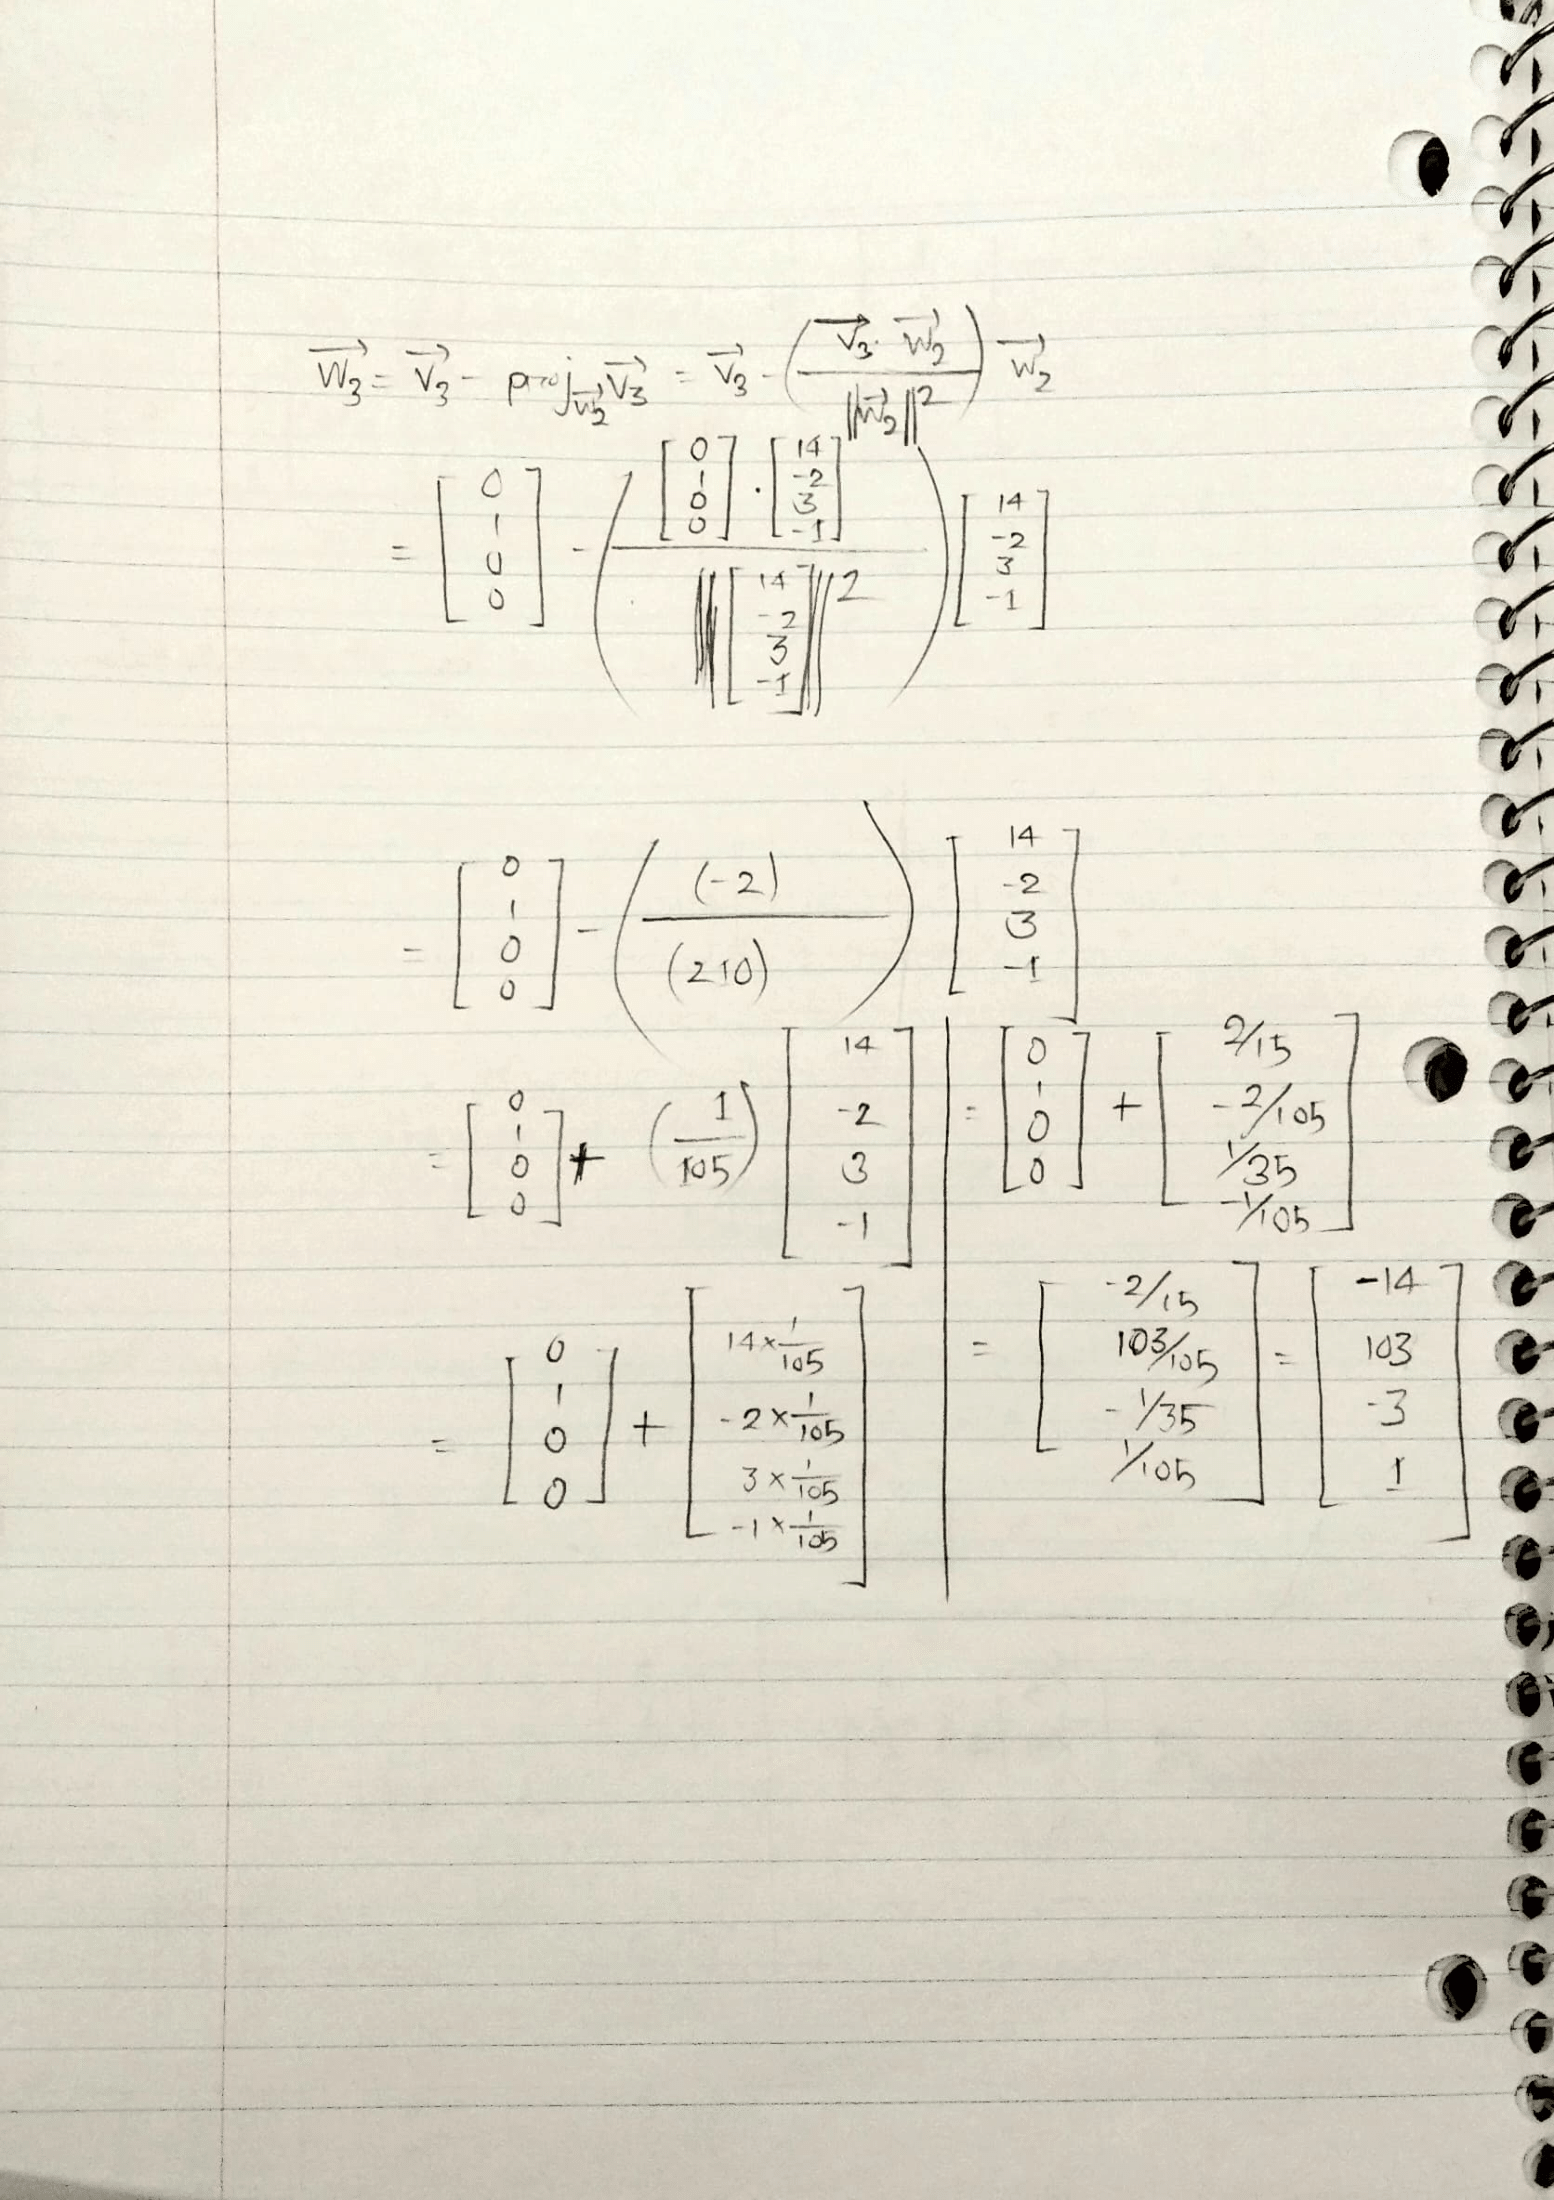 w⃗₃ = v⃗₃ - proj_w⃗₂ v⃗₃ = v⃗₃ - ( (v⃗₃ · w⃗₂) / ||w⃗₂||² ) w⃗₂
= [0 1 0 0] - ( ([0 1 0 0] · [14 -2 3 -1]) / ||[14 -2 3 -1]||² ) [14 -2 3 -1]
= [0 1 0 0] - ( (-2) / (210) ) [14 -2 3 -1]
= [0 1 0 0] + (1/105) [14 -2 3 -1]
= [0 1 0 0] + [14×1/105 -2×1/105 3×1/105 -1×1/105]
= [0 1 0 0] + [2/15 -2/105 1/35 -1/105]
= [-2/15 103/105 -1/35 1/105] = [-14 103 -3 1]